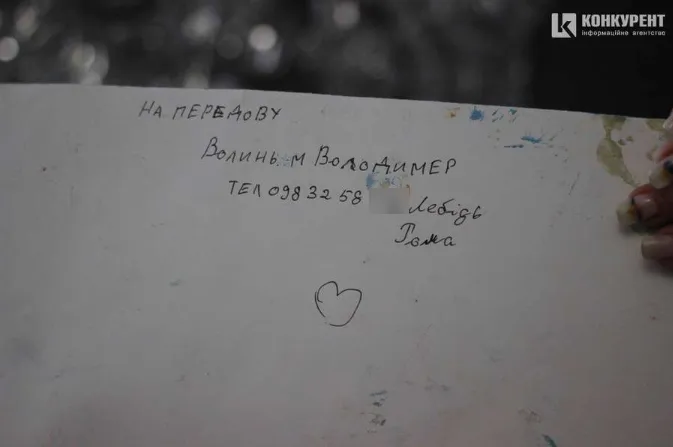 КОНКУРЕНТ
інформаційне агентство
НА ПЕРЕДОВУ
Волинь м Володимер
ТЕЛ 098 32 58
Лебідь
Рома